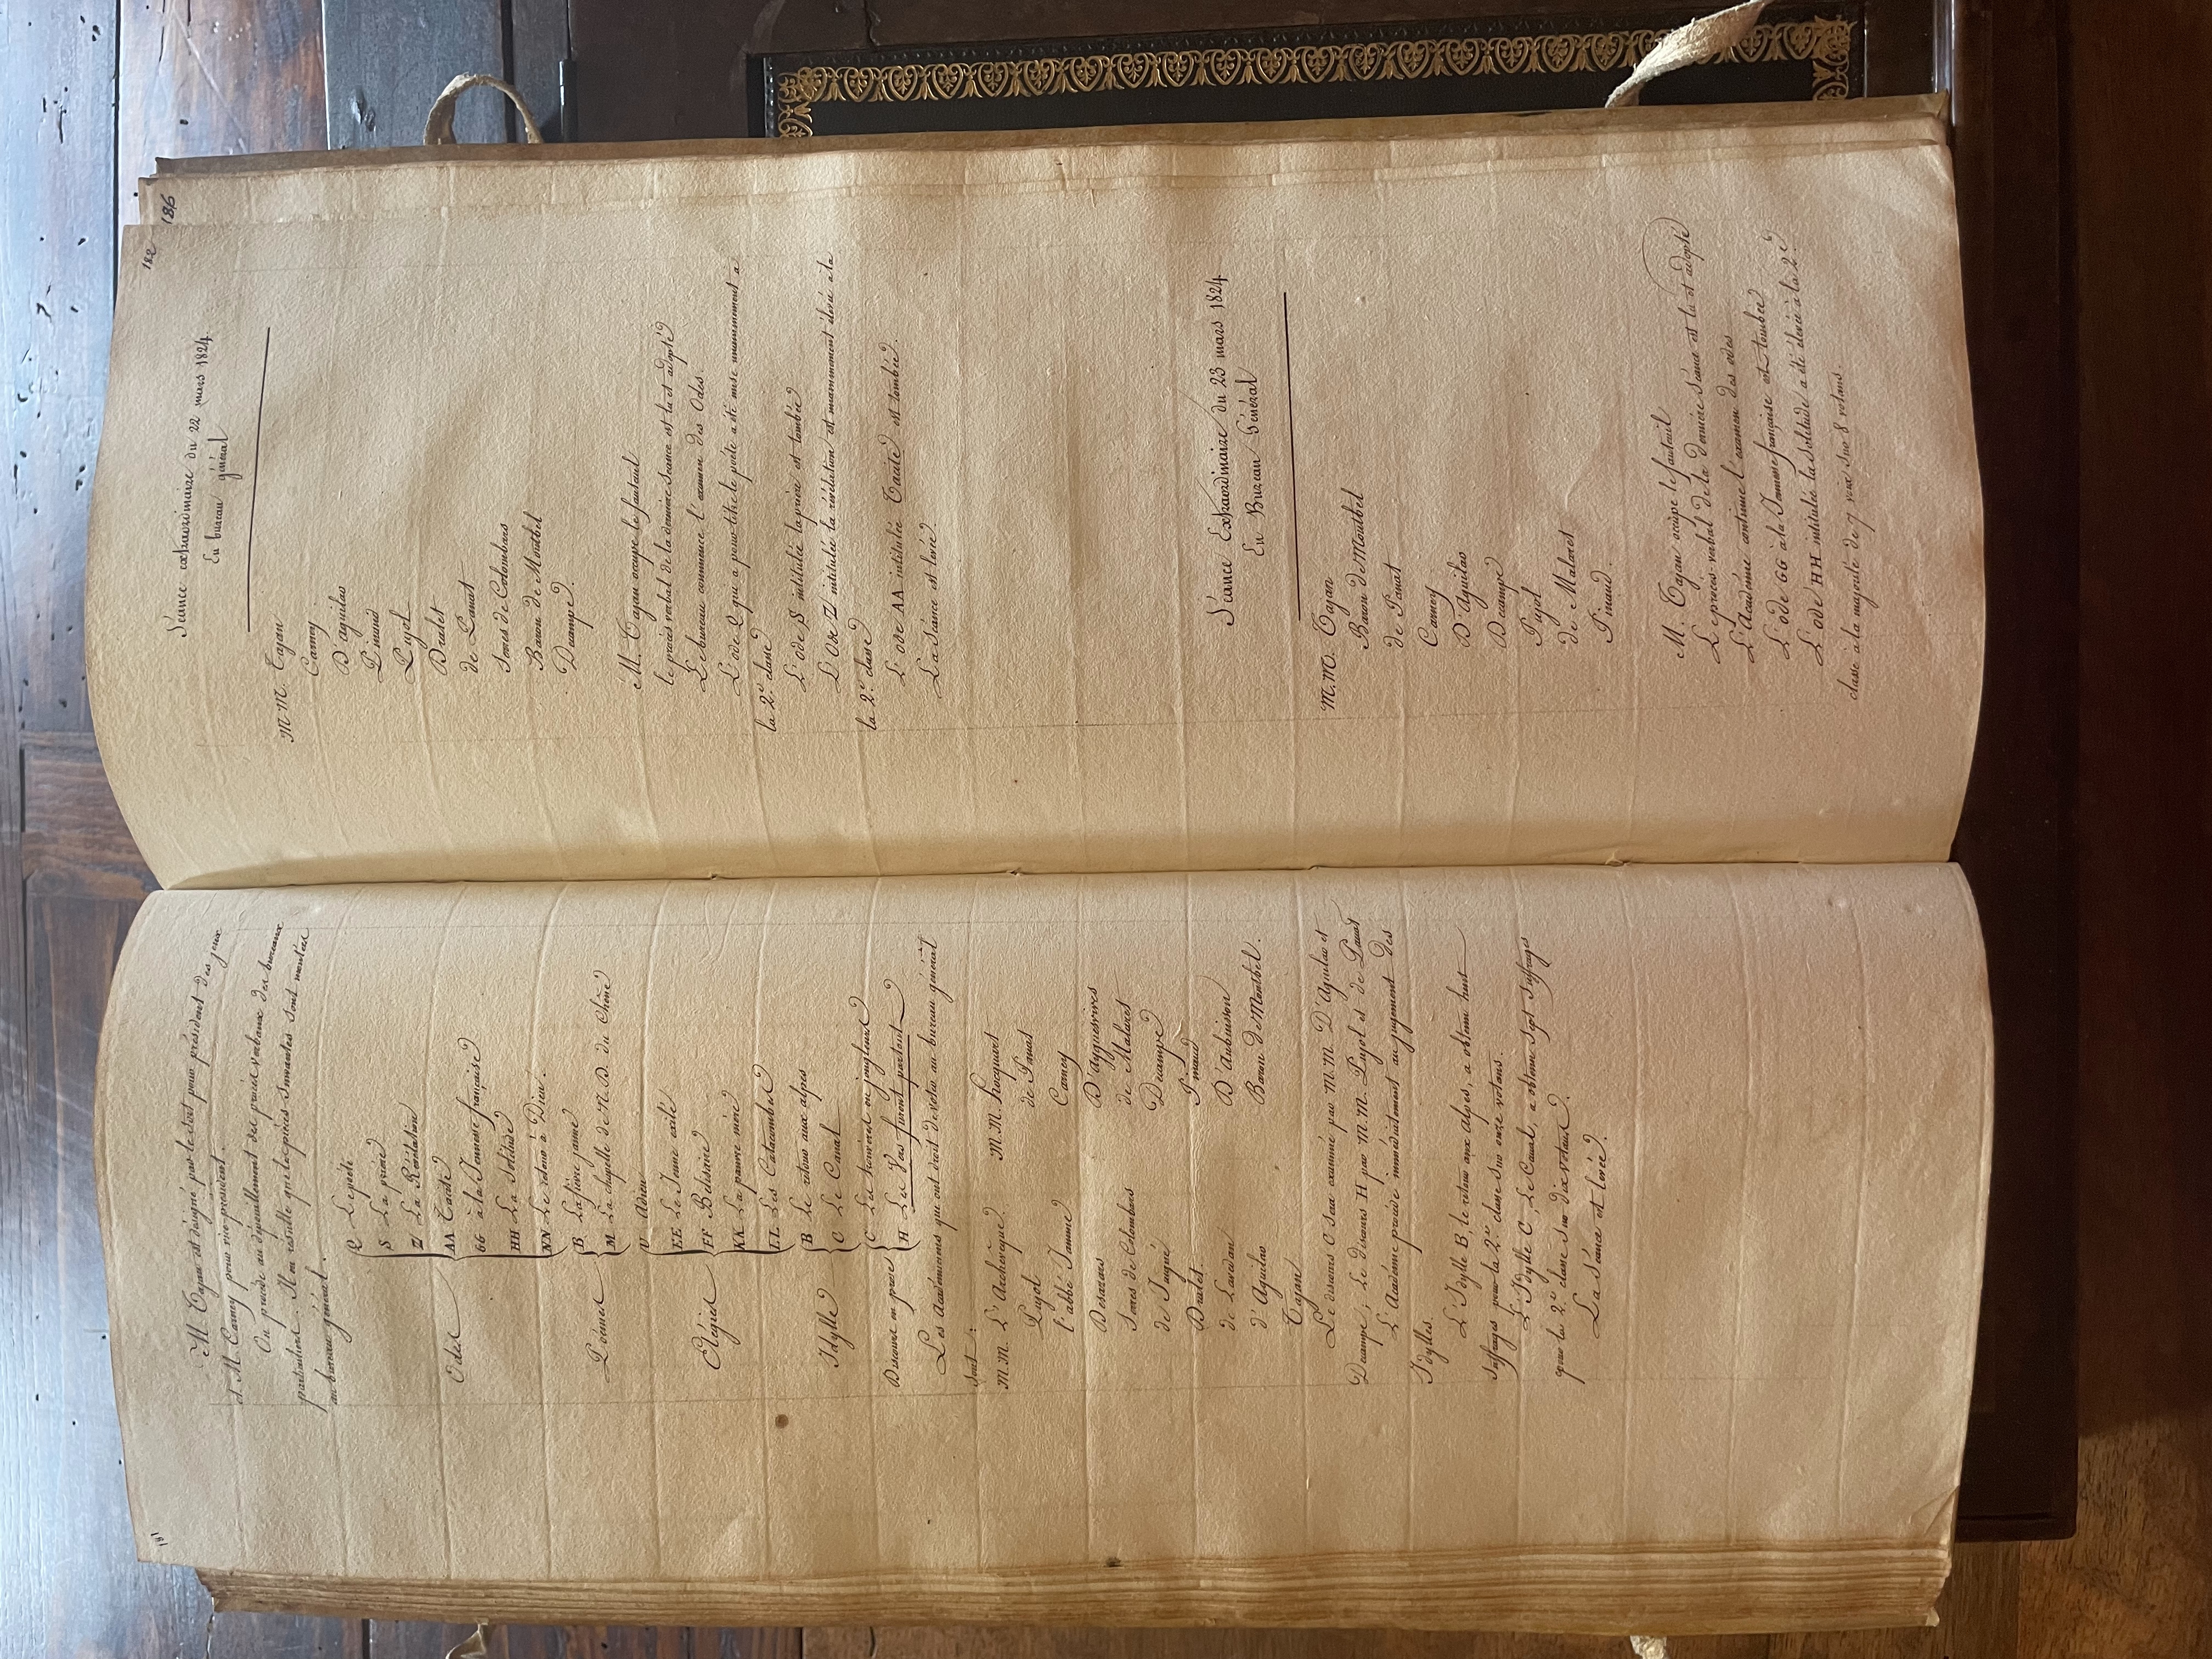 181
M. Tajan est désigné par le sort pour président des jeux
et M. Carney pour vice-président.
On procède au dépouillement des procès verbaux des bureaux
particuliers. Il en résulte que les pièces suivantes sont montées
au bureau général.
Odes
Q Le poète
S La prière
Z La Révélation
AA Tacite
GG à la Jeunesse française
HH La Solitude
NN Le retour à Dieu
Poëmes
B La fièvre jaune
M La chapelle de N. D. du Chêne
Elégies
U Adieu
EE Le Jeune exilé
FF Bélisaire
KK La pauvre mère
LL Les Catacombes
Idylles
B Le retour aux alpes
C Le Canal
Discours en prose
C Les trouvères ou jongleurs
H Les Vers furent partout
Les Académiciens qui ont droit de voter au bureau général
sont:
M.M. L'Archevêque
Pujol
l'abbé Jamme
Desazars
Serres de Colombars
de Jugué
Dralet
de Lavedan
d'Aguilar
Tajan
M.M. Hocquart
de Panat
Carney
D'ayguesvives
de Malaret
Decampe
Pinaud
D'Aubuisson
Baron de Montbel.
Le discours C sera examiné par M.M. D'Aguilar et
Decampe, Le discours H par M.M. Pujol et de Panat
L'Académie procède immédiatement au jugement des
Idylles.
L'Idylle B, le retour aux Alpes, a obtenu huit
suffrages pour la 2e classe sur onze votans.
L'Idylle C, Le Canal, a obtenu sept suffrages
pour la 2e classe sur dix votans.
La Séance est levée.
186
182
Séance extraordinaire du 22 mars 1824.
En bureau général
M.M. Tajan
Carney
D'aguilar
Pinaud
Pujol
Dralet
de Panat
Serres de Colombars
Baron de Montbel
Decampe.
M. Tajan occupe le fauteuil
le procès verbal de la dernière séance est lu et adopté
Le bureau commence l'examen des Odes
L'ode Q qui a pour titre le poète a été mise unanimement à
la 2e classe
L'ode S intitulée la prière est tombée
L'Ode Z intitulée la révélation est unanimement élevée à la
la 2e classe
L'ode AA intitulée Tacite est tombée
La Séance est levée.
Séance Extraordinaire du 23 mars 1824
En Bureau Général
M.M. Tajan
Baron de Montbel
de Panat
Carney
D'Aguilar
Decampe
Pujol
de Malaret
Pinaud.
M. Tajan occupe le fauteuil
Le procès-verbal de la dernière Séance est lu et adopté
L'Académie continue l'examen des odes
L'ode GG à la Jeunesse française est tombée
L'ode HH intitulée la Solitude a été élevée à la 2e
classe à la majorité de 7 voix sur 8 votans.